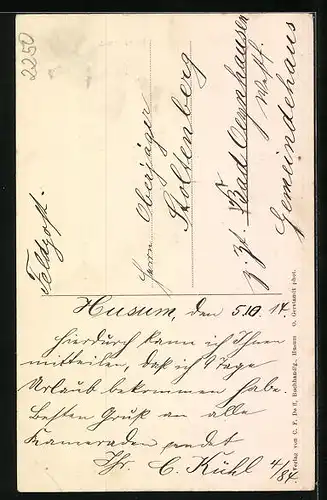 2250
Feldpost.
Herrn Oberjäger
Stoltenberg
z. Zt. Bad Oeynhausen
Westf.
Gemeindehaus
Husum, den 5.10.17.
Hierdurch kann ich Ihnen
mitteilen, daß ich 9 Tage
Urlaub bekommen habe.
Besten Gruß an alle
Kameraden sendet
Ihr. C. Kühl 4/84.
Verlag von C. F. Delff, Buchhandlg., Husum G. Gerstandt phot.